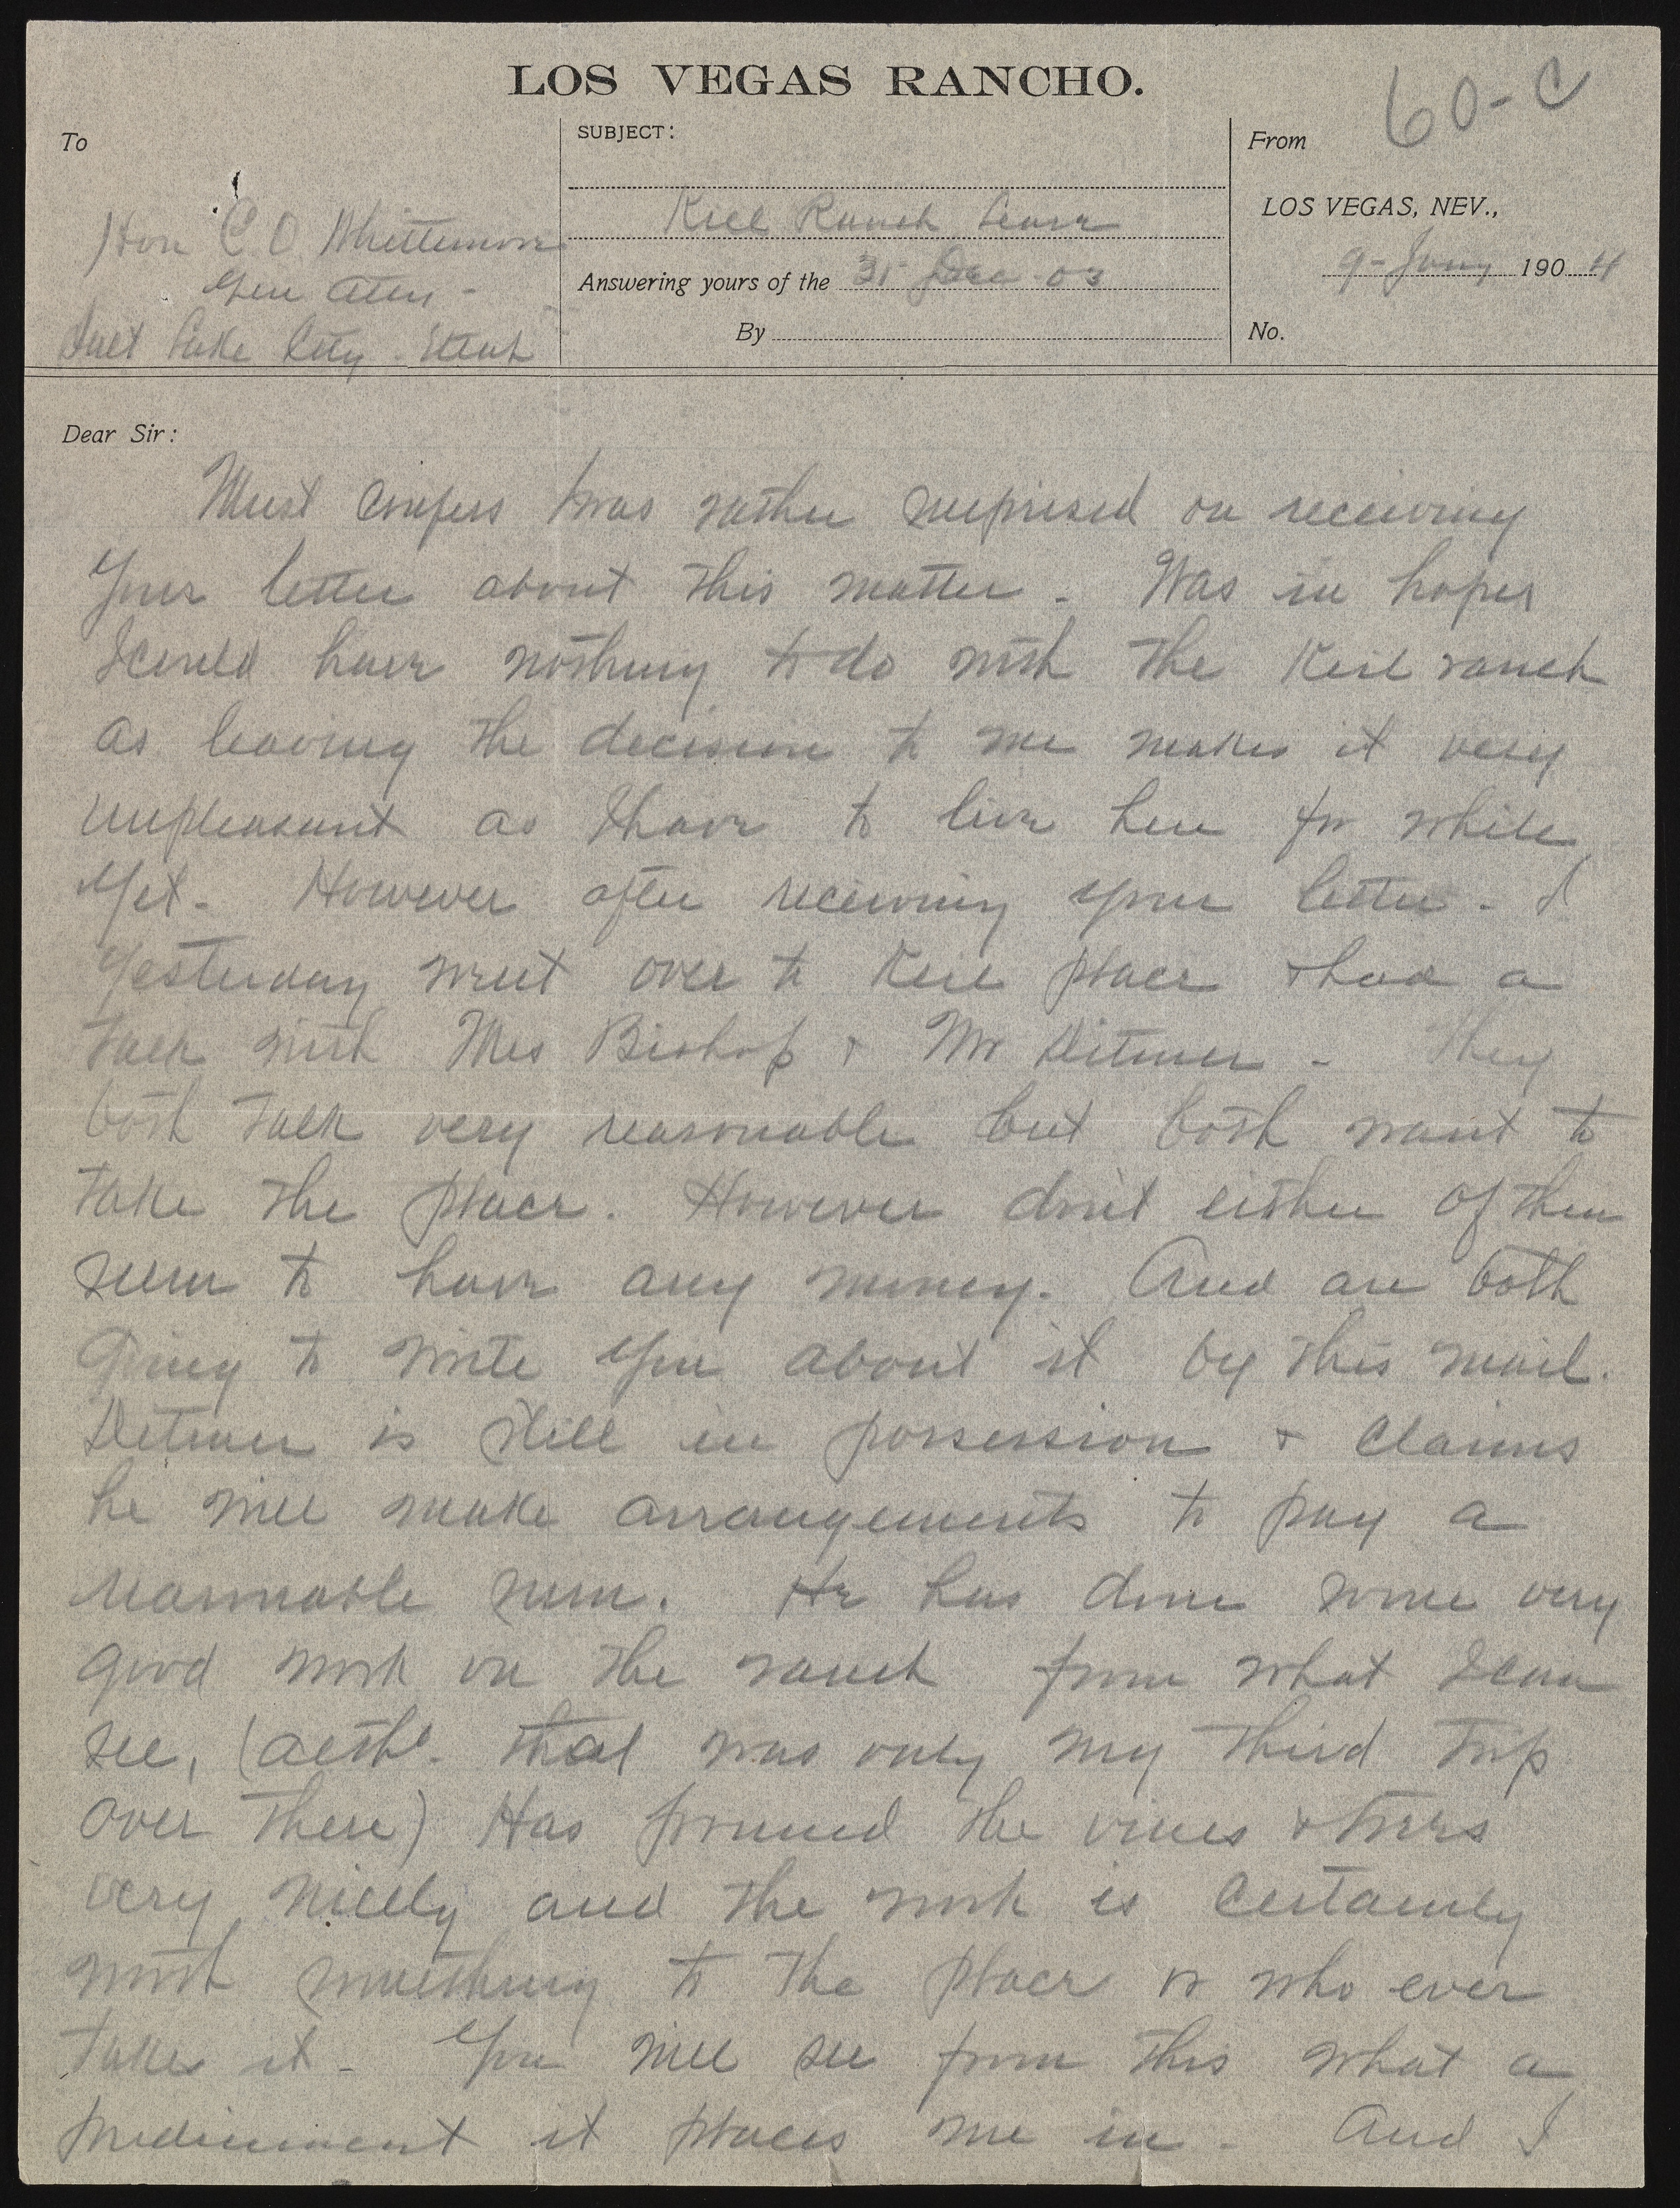 LOS VEGAS RANCHO.
60-C
To
SUBJECT:
From
Hon C. O. Whittemore
Gen Atty -
Salt Lake City - Utah
Kiel Ranch Lease
Answering yours of the 31 Dec 03
By
LOS VEGAS, NEV.,
9-Jany 1904
No.
Dear Sir:
Must confess I was rather surprised on receiving
Your letter about this matter - Was in hopes
I could have nothing to do with the Kiel ranch
as leaving the decision to me makes it very
unpleasant as I have to live here for while
Yet - However after receiving your letter - I
Yesterday went over to Kiel place & had a
talk with Mrs Bishop & Mr Ditmer - They
both talk very reasonable but both want to
take the place. However don't either of them
seem to have any money. And are both
going to write You about it by this mail.
Ditmer is still in possession & claims
he will make arrangements to pay a
reasonable sum. He has done some very
good work on the ranch from what I can
see, (altho. that was only my third trip
over there) Has prunned the vines & trees
very nicely and the work is certainly
worth something to the place or who ever
takes it - You will see from this what a
predicament it places me in - And I